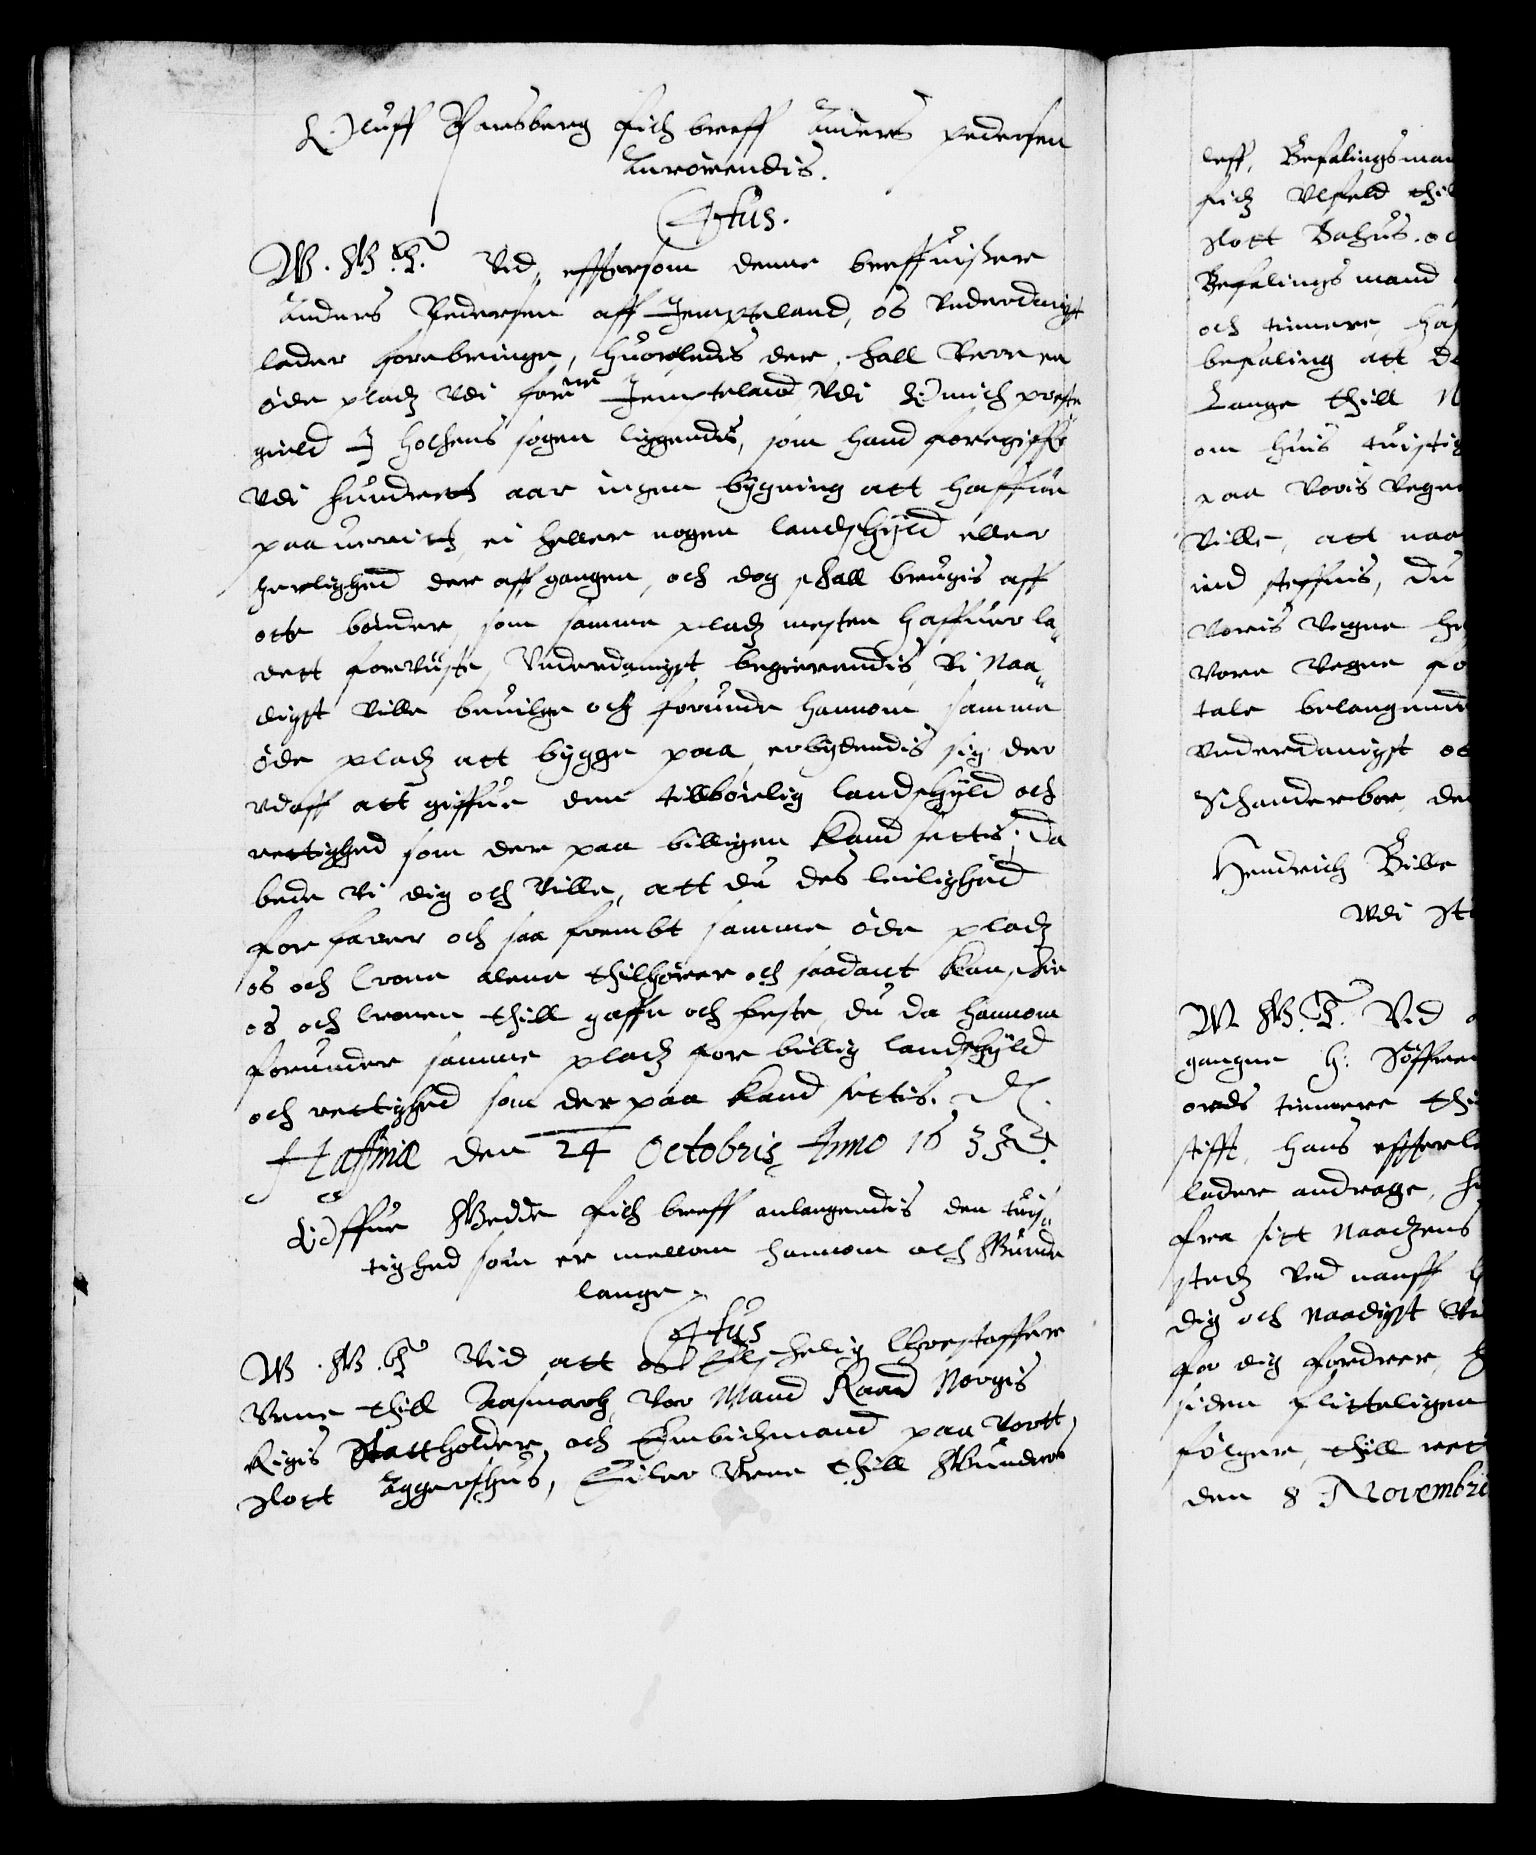 Oluff Parsberg fich breff Anders Pedersen
Anrörendis.
C4tus.
W. G. T. Vid, efftersom denne breffuisere
Anders Pedersen aff Jempteland, os Underdanigst
lader forebringe, huorledis der, shall Vere en
öde pladtz Udi forne Jempteland Udi Offuich preste
gield I Holsens sogen liggendis, som hand foregiffr
Udi hundrett aar ingen bygning att haffue
paa uerritt, ei heller nogen landschyld eller
herlighed der aff gangen, och dog schall brugis aff
otte bönder, som samme pladtz mesten haffuer la„
dett foruüste, Underdanigst begierendis, Vi Naa„
digst Ville beuilge och forunde hannom samme
öde pladtz att bygge paa, erbydendis sig der
udaff att giffue den tillbörlig landschyld och
rettighed som der paa billigen kand settis, Da
bede Vi dig och Ville, att du des leilighed
forfarer och saa frembt samme öde pladtz
os och Crone alene thilhörer och saadant kan, schie
os och Cronen thill gaffn och beste, du da hannom
forunder samme pladtz for billig landschyld
och rettighed som der paa kand settis. D.
Hafniæ den 24 Octobris Anno 1633.
Offue Gedde fich breff anlangendis den tuis„
tighed som er mellom hannom och Gunde
lange.
C4tus
W. G. T. Vid att os Elschelig Christoffer
Urne thill Aasmarch, Vor Mand Raad Norgis
Rigis Stattholder, och Embitzmand paa Vortt
slott Aggershus, Eiler Urne thill
leff, Befalingsman
fich Ulfeld thil
slott Bahus. oc
Befalings mand
och tienere, haf
befaling att d
Lange thill
om huis tuistig
paa Voris Vegne
Ville, att naa
ind steffnis, du
Voris Vegne
Vore Vegne fo
tale belangende
underdanigst os
Schanderbor, den
Hendrich Bille
Udi St
W. G. T. Vid
gangne H: Söffren
ords tienere thi
stifft, hans effterl
lader andrage,
fra sitt Naadzens
stedtz Ved nauff
dig och Naadigst
for dig fordrer,
siden flitteligen
fölger, thill rett
den 8 Novembri